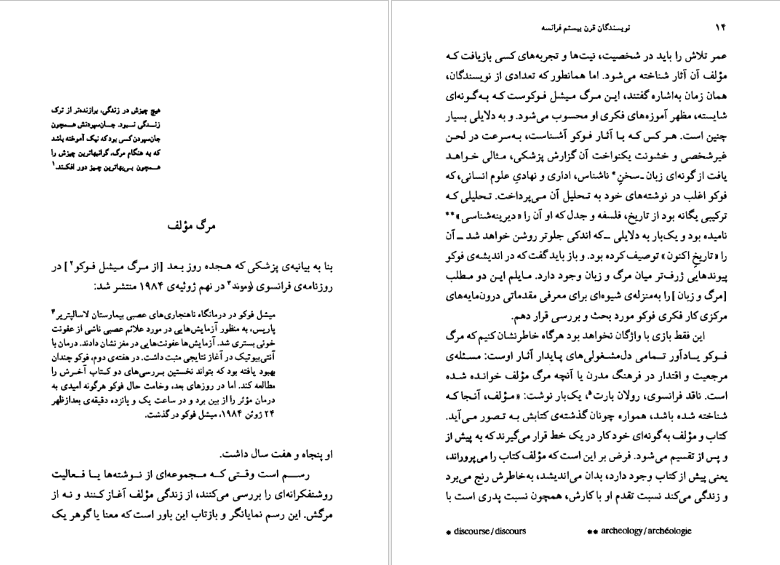 هیچ چیزش در زندگی، برازنده‌تر از ترک
زندگی نبود. جان‌سپردنش همچون
جان‌سپردن کسی بود که نیک آموخته باشد
که به هنگام مرگ، گرانبهاترین چیزش را
همچون بی‌بهاترین چیز دور افکند.۱
مرگ مؤلف
بنا به بیانیه‌ی پزشکی که هجده روز بعد [از مرگ میشل فوکو۲] در
روزنامه‌ی فرانسوی لوموند۳ در نهم ژوئیه‌ی ۱۹۸۴ منتشر شد:
میشل فوکو در درمانگاه ناهنجاری‌های عصبی بیمارستان لاسالپتریر۴
پاریس، به منظور آزمایش‌هایی در مورد علائم عصبی ناشی از عفونت
خونی بستری شد. آزمایش‌ها عفونت‌هایی در مغز نشان دادند. درمان با
آنتی‌بیوتیک در آغاز نتایجی مثبت داشت. در هفته‌ی دوم، فوکو چندان
بهبود یافته بود که بتواند نخستین بررسی‌های دو کتاب آخرش را
مطالعه کند. اما در روزهای بعد، وخامت حال فوکو هرگونه امیدی به
درمان مؤثر را از بین برد و در ساعت یک و پانزده دقیقه‌ی بعدازظهر
۲۴ ژوئن ۱۹۸۴، میشل فوکو در گذشت.
او پنجاه و هفت سال داشت.
رسم است وقتی که مجموعه‌ای از نوشته‌ها یا فعالیت
روشنفکرانه‌ای را بررسی می‌کنند، از زندگی مؤلف آغاز کنند و نه از
مرگش. این رسم نمایانگر و بازتاب این باور است که معنا یا گوهر یک
۱۴ نویسندگان قرن بیستم فرانسه
عمر تلاش را باید در شخصیت، نیت‌ها و تجربه‌های کسی بازیافت که
مؤلف آن آثار شناخته می‌شود. اما همانطور که تعدادی از نویسندگان،
همان زمان به‌اشاره گفتند، این مرگ میشل فوکوست که به‌گونه‌ای
شایسته، مظهر آموزه‌های فکری او محسوب می‌شود. و به دلایلی بسیار
چنین است. هر کس که با آثار فوکو آشناست، به‌سرعت در لحن
غیرشخصی و خشونت یکنواخت آن گزارش پزشکی، مثالی خواهد
یافت از گونه‌ای زبان ـ سخن* ناشناس، اداری و نهادیِ علوم انسانی، که
فوکو اغلب در نوشته‌های خود به تحلیل آن می‌پرداخت. تحلیلی که
ترکیبی یگانه بود از تاریخ، فلسفه و جدل که او آن را «دیرینه‌شناسی»**
نامیده بود و یک‌بار به دلایلی ـ که اندکی جلوتر روشن خواهد شد ـ آن
را «تاریخ اکنون» توصیف کرده بود. و باز باید گفت که در اندیشه‌ی فوکو
پیوندهایی ژرف‌تر میان مرگ و زبان وجود دارد. مایلم این دو مطلب
[مرگ و زبان] را به‌منزله‌ی شیوه‌ای برای معرفی مقدماتی درون‌مایه‌های
مرکزی کار فکری فوکو مورد بحث و بررسی قرار دهم.
این فقط بازی با واژگان نخواهد بود هرگاه خاطرنشان کنیم که مرگ
فوکو یادآور تمامی دل‌مشغولی‌های پایدار آثار اوست: مسئله‌ی
مرجعیت و اقتدار در فرهنگ مدرن یا آنچه مرگ مؤلف خوانده شده
است. ناقد فرانسوی، رولان بارت۵، یک‌بار نوشت: «مؤلف، آنجا که
شناخته شده باشد، همواره چونان گذشته‌ی کتابش به تصور می‌آید.
کتاب و مؤلف به گونه‌ای خودکار در یک خط قرار می‌گیرند که به پیش از
و پس از تقسیم می‌شود. فرض بر این است که مؤلف کتاب را می‌پروراند،
یعنی پیش از کتاب وجود دارد، بدان می‌اندیشد، به‌خاطرش رنج می‌برد
و زندگی می‌کند نسبت تقدم او با کارش، همچون نسبت پدری است با
* discourse/discours ** archeology/archéologie